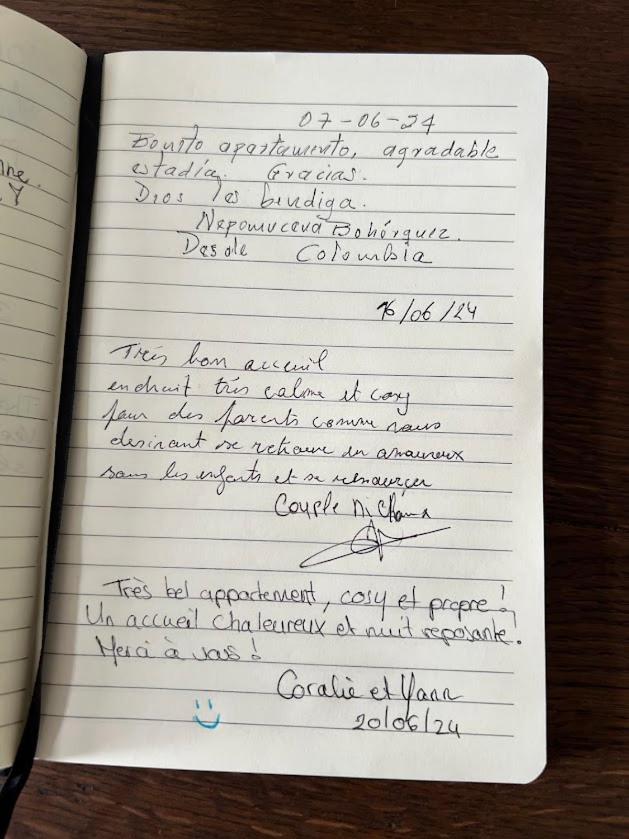 nne.
07-06-24
Bonito apartamento, agradable
estadía. Gracias.
Dios les bendiga.
Nepomuceva Bohórquez.
Desde Colombia
16/06/24
Trés bon accueil
endruit trés calme et cosy
pour des parents comme nous
desirant se retrouve en amoureux
sans les enfants et se ressourcer
Couple
Très bel appartement, cosy et propre!
Un accueil chaleureux et nuit reposante.
Merci à vous!
Coralie et Yann
20/06/24